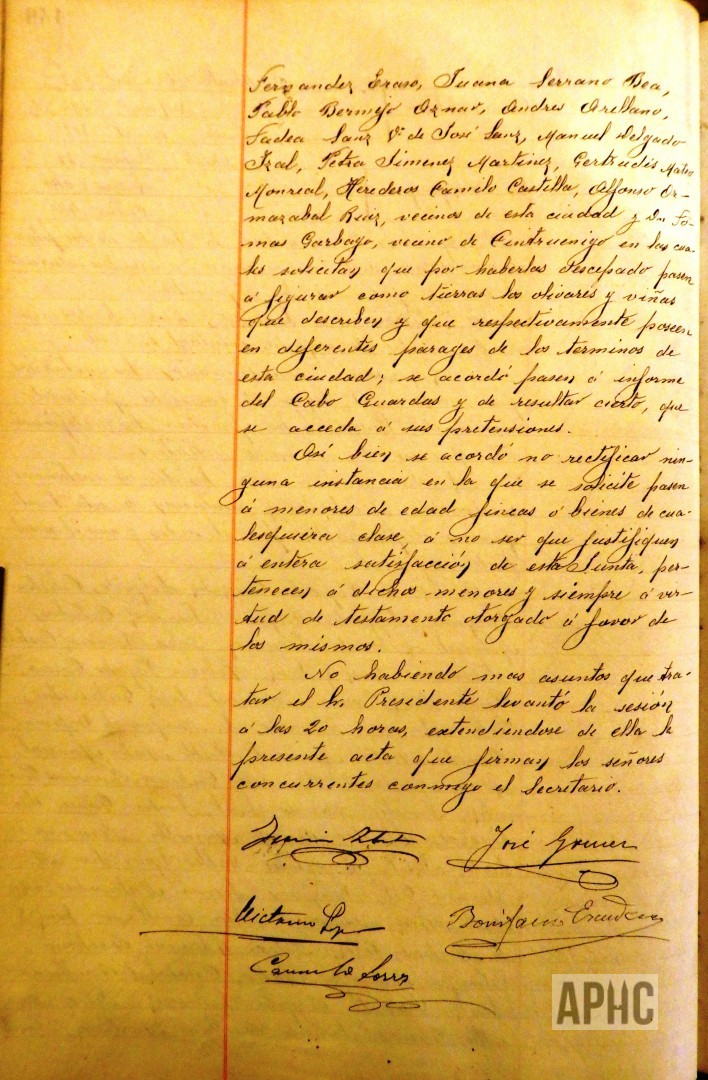 Fernandez Eraso, Juana Serrano Bea,
Pablo Bermejo Aznar, Andres Arellano,
Tadea Sanz Vª de José Sanz, Manuel Delgado
Izal, Petra Jimenez Martinez, Gertrudis Mateo
Monreal, Herederos Camilo Castilla, Alfonso Or-
mazabal Ruiz, vecinos de esta ciudad y Dn To-
mas Garbayo, vecino de Cintruenigo en las cua-
les solicitan que por haberlos descepado pasen
á figurar como tierras los olivares y viñas
que describen y que respectivamente poseen
en diferentes parages de los terminos de
esta ciudad; se acordó pasen á informe
del Cabo Guardas y de resultar cierto, que
se acceda á sus pretensiones.
Asi bien se acordó no rectificar nin-
guna instancia en la que se solicite pasen
á menores de edad fincas ó bienes de cua-
lesquiera clase, á no ser que justifiquen
á entera satisfacción de esta Junta, per-
tenecen á dichos menores y siempre á vir-
tud de testamento otorgado á favor de
los mismos.
No habiendo mas asuntos que tra-
tar el Sr. Presidente levantó la sesión
á las 20 horas, extendiéndose de ella la
presente acta que firman los señores
concurrentes conmigo el Secretario.
José Gomez
Victorino
Bonifacio Escudero
Camilo Torres
APHC